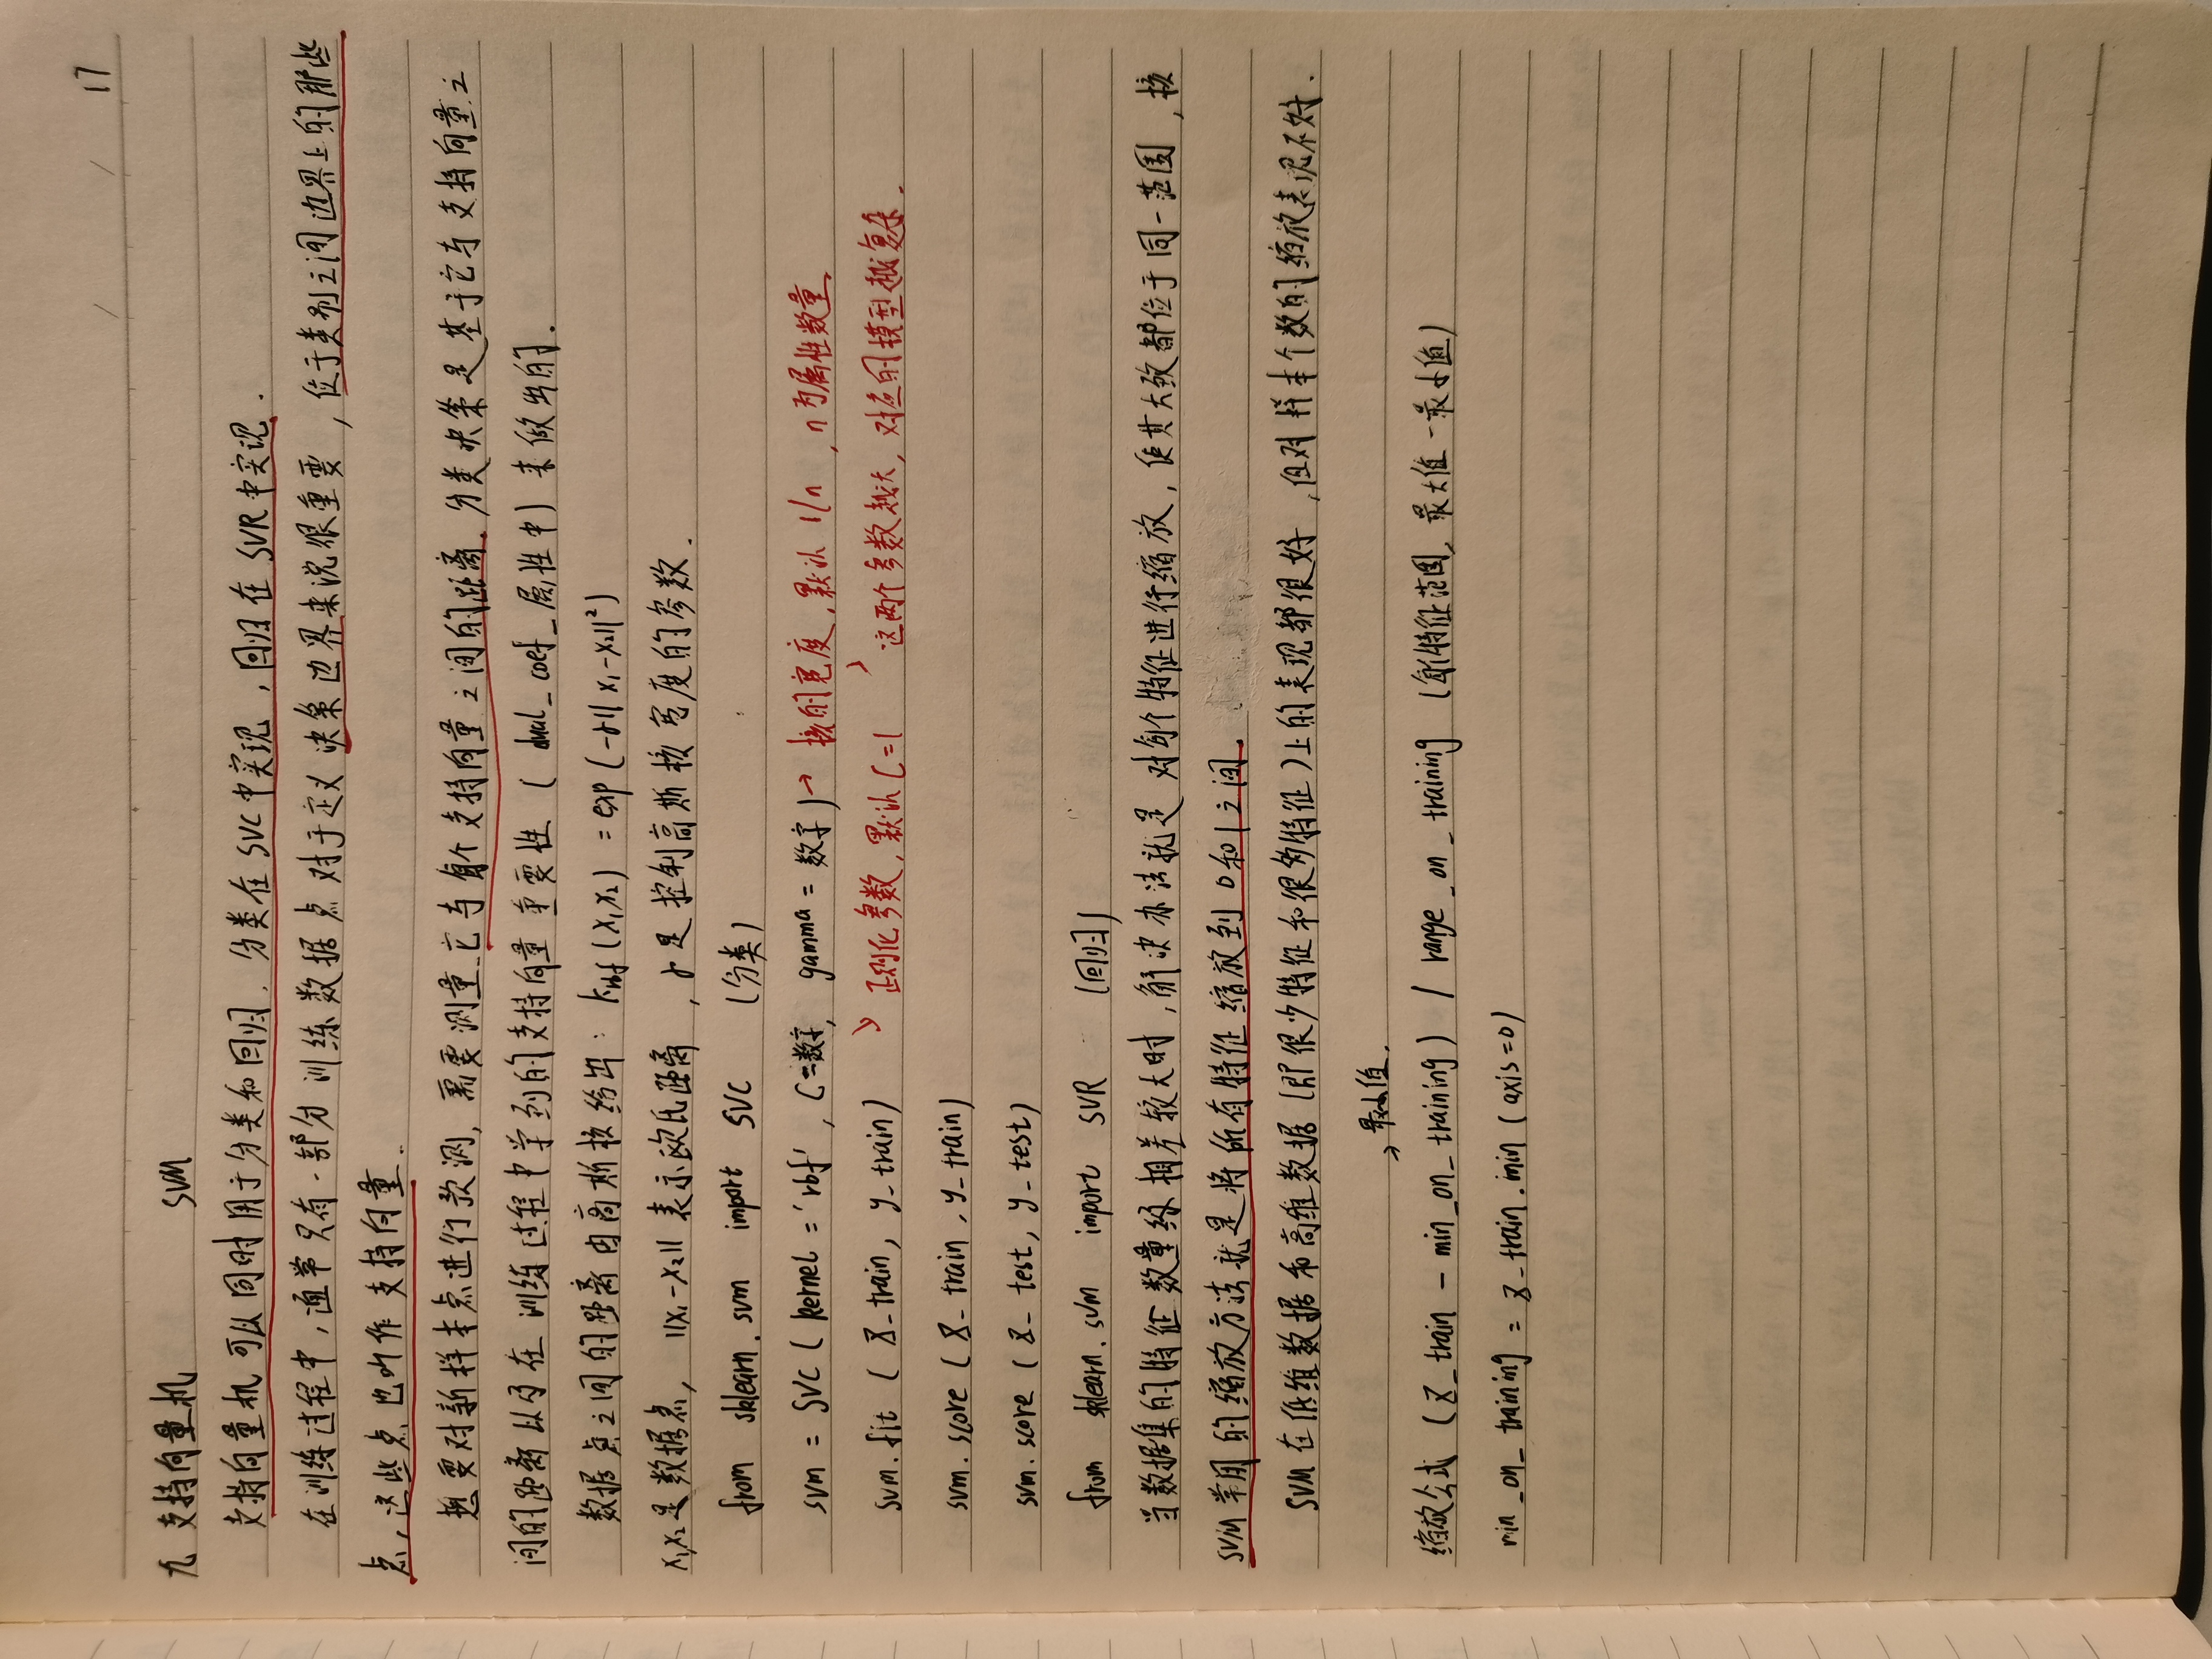 17
九 支持向量机 SVM
支持向量机可以同时用于分类和回归，分类在SVC中实现，回归在SVR中实现.
在训练过程中，通常只有一部分训练数据点对于定义决策边界来说很重要，位于类别之间边界上的那些
点，这些点也叫作支持向量.
想要对新样本点进行预测，需要测量它与每个支持向量之间的距离. 分类决策是基于它与支持向量之
间的距离以及在训练过程中学到的支持向量重要性（dual_coef_属性中）来做出的.
数据点之间的距离由高斯核给出: krbf(x₁x₂)=exp(-γ||x₁-x₂||²)
x₁,x₂是数据点，||x₁-x₂||表示欧氏距离，γ是控制高斯核宽度的参数.
from sklearn.svm import SVC (分类)
svm = SVC (kernel='rbf', C=数字, gamma=数字) → 核的宽度，默认1/n，n为属性数量
svm.fit (X_train, y_train) 正则化参数，默认C=1 这两个参数越大，对应的模型越复杂.
svm.score (X_train, y_train)
svm.score (X_test, y_test)
from sklearn.svm import SVR (回归)
当数据集的特征数量级相差较大时，解决办法就是对每个特征进行缩放，使其大致都位于同一范围，核
SVM常用的缩放方法就是将所有特征缩放到0和1之间.
SVM在低维数据和高维数据(即很少特征和很多特征)上的表现都很好，但对样本个数的缩放表现不好.
→最小值.
缩放公式 (X_train - min_on_training) / range_on_training (每特征范围，最大值-最小值)
min_on_training = X_train.min (axis=0)